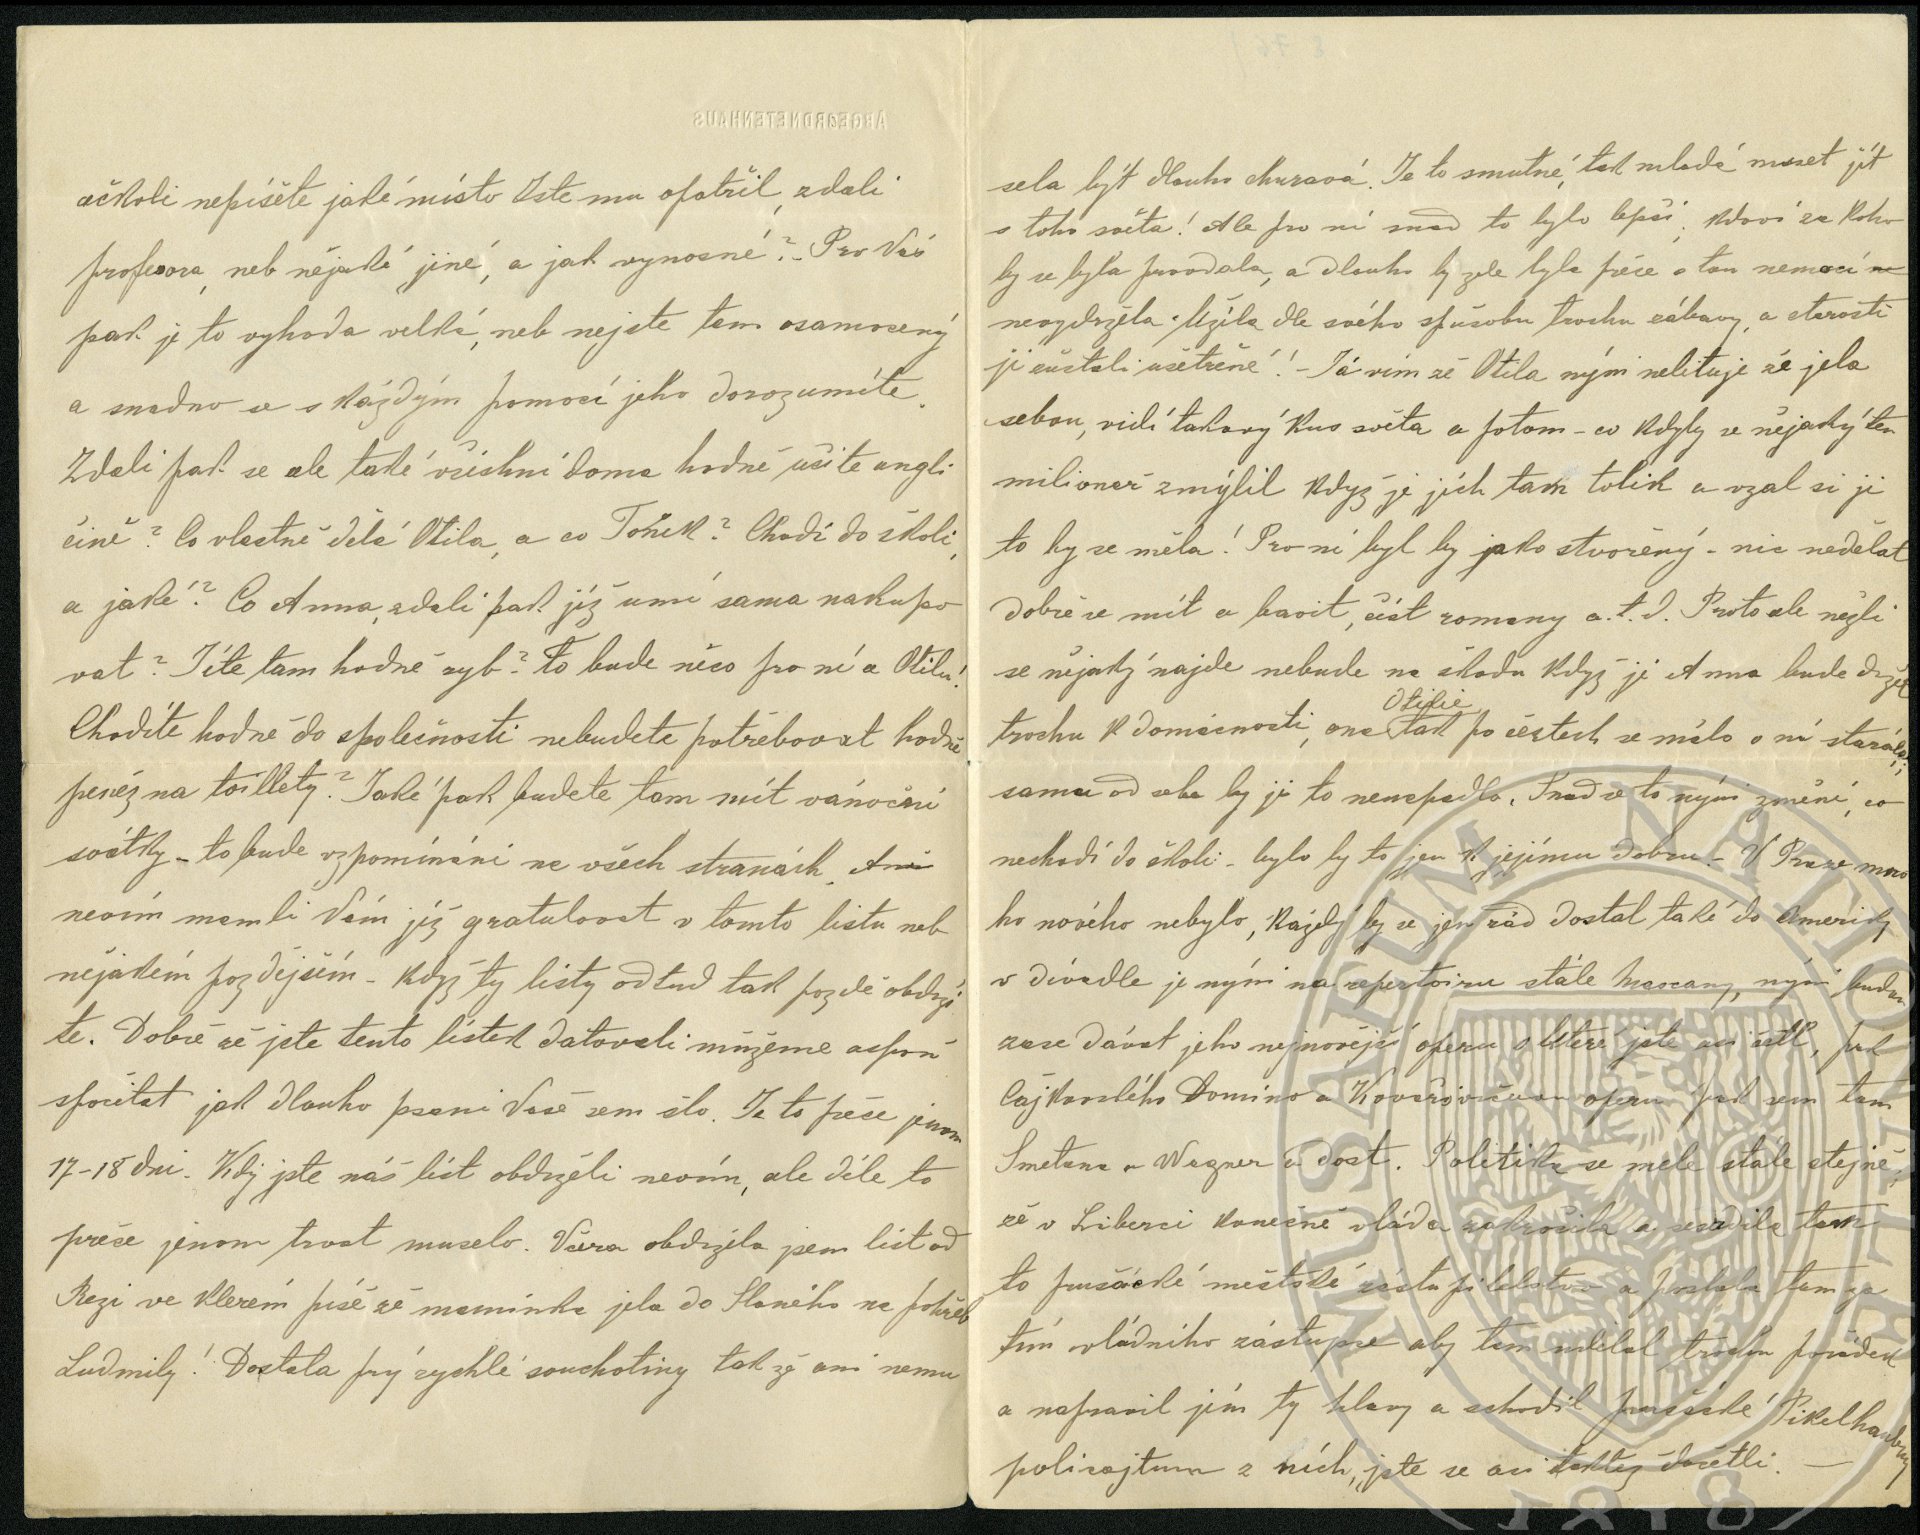 ABGEORDNETENHAUS
ačkoli nepíšéte jaké místo Iste mu opatřil, zdali
profesora, neb nějaké jiné, a jak vynosné? Pro Vás
pak je to vyhoda velká, neb nejste tam osamocený
a snadno se s káždým pomocí jeho dorozumíte.
Zdali pak se ale také všichni doma hodně učíte angli
čině? Co vlastně dělá Otila, a co Toník? Chodí do školi,
a jaké? Co Anna, zdali pak jíž umí sama nakupo
vat? Jíte tam hodně ryb? To bude něco pro ní a Otilu!
Chodíte hodně do společnosti nebudete potřebovat hodně
peněz na toillety? Jaké pak budete tam mít vánoční
svátky – to bude vzpomínání na všech stranách. Ani
nevím mamli Vám jíž gratulovat v tomto listu neb
nějakém pozdějším – když ty listy odtud tak pozdě obdrží
te. Dobře zě jste tento lístek datovali můžeme aspoň
spočítat jak dlouho psaní Vaše sem šlo. Je to přece jenom
17–18 dní. Kdy jste náš list obdrželi nevím, ale déle to
přece jenom trvat muselo. Včera obdržela jsem list od
Rezi ve kterém píšě zě maminka jela do Slaného na pohřeb
Ludmily! Dostala prý rychlé souchotiny tak zě ani nemu
sela být dlouho churavá. Je to smutné, tak mladá muset jít
s toho světa! Ale pro ní snad to bylo lepší, kdoví za koho
by se byla provdala, a dlouho by zde byla přece s tou nemocí ne
nevydržela. Užila dle svého spůsobu trochu zábavy, a starosti
jí zůstali ušetřené! – Já vím zě Otila nýní nelituje zě jela
sebou, vidí takový kus světa a potom – co kdyby se nějaký ten
milionář zmýlil když je jích tam tolik a vzal si jí
to by se měla! Pro ní byl by jako stvořený – nic nedělat
dobře se mít a bavit, číst romany a.t.d. Proto ale něžli
se nějaký najde nebude na škodu když jí Anna bude držet
Otilie
trochu k domácnosti, ona tak po čertech se málo o ní starála;
sama od sebe by jí to nenapadlo. Snad se to nýní změní, co
nechodí do školi – bylo by to jen k jejímu dobru – V Praze mno
ho nového nebylo, kazdý by se jen rád dostal také do Ameriky
v divadle je nýní na repertoiru stále Mascany, nýní budou
zase dávat jeho nejnovější operu o které jste asi četl, pak
Čajkovského Domino a Kovářovicovu operu pak sem tam
Smetana a Wagner a dost. Politika se mele stále stejně,
zě v Liberci konečně vláda zakročila a sesadila tam
to prušácké městské zástupitelstvo a poslala tam za
tím vládního zástupce aby tam udělal trochu pořádek
a napravil jím ty hlavy a schodil prušácké Pikelhauby
policajtum z ních, jste se asi taktéž dočetli. —
MUSAEUM NATIONALE
1818